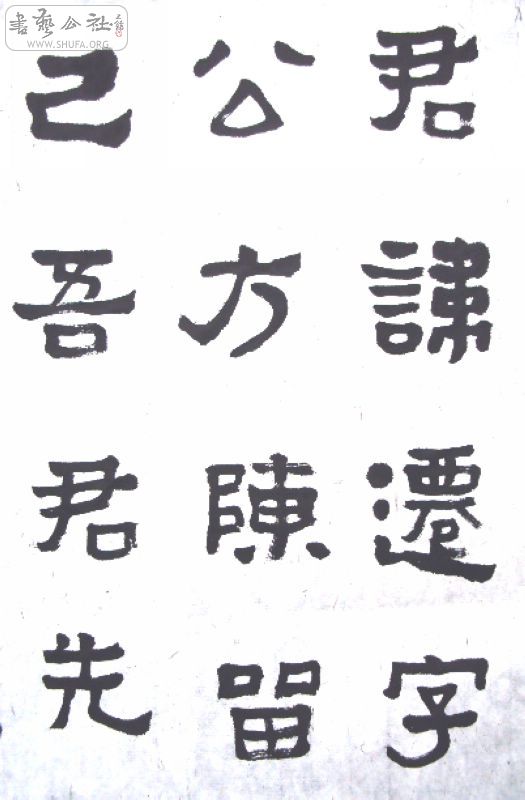 君諱遷字
公方陳留
己吾君先
書藝公社
WWW.SHUFA.ORG